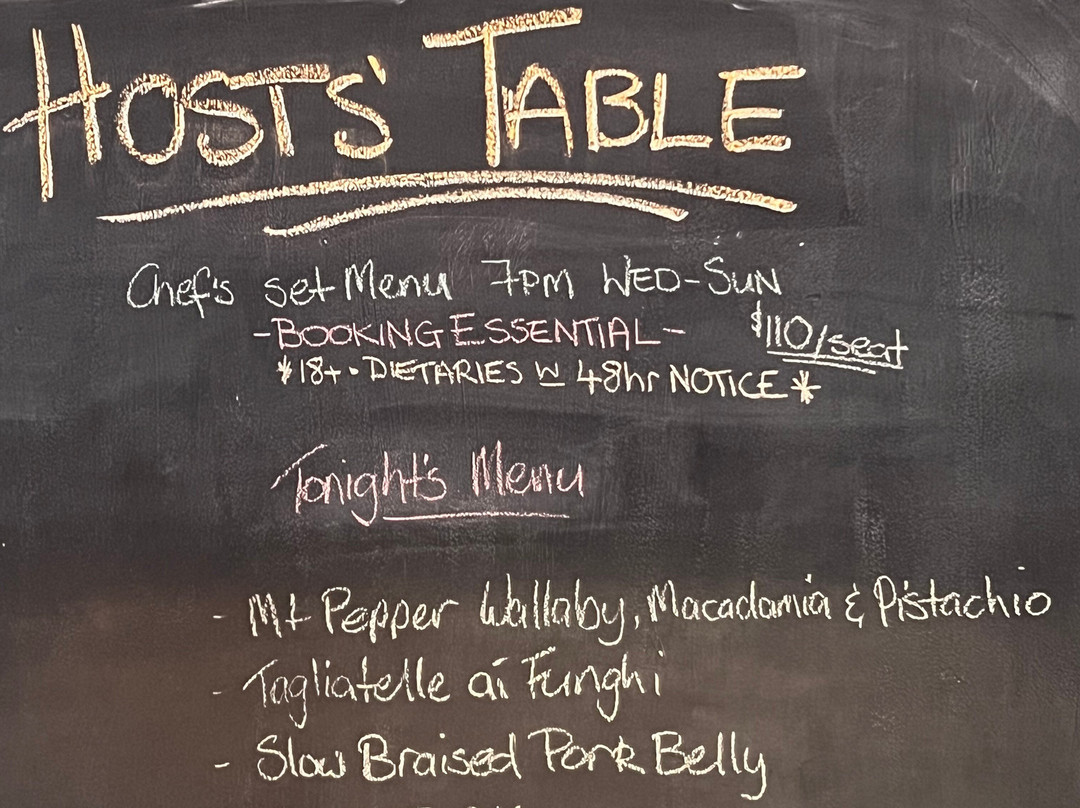 HOSTS' TABLE
Chef's set Menu 7pm WED-SUN
-BOOKING ESSENTIAL- $110/seat
*18+ • DIETARIES W 48hr NOTICE*
Tonight's Menu
- Mt Pepper Wallaby, Macadamia & Pistachio
- Tagliatelle ai Funghi
- Slow Braised Pork Belly